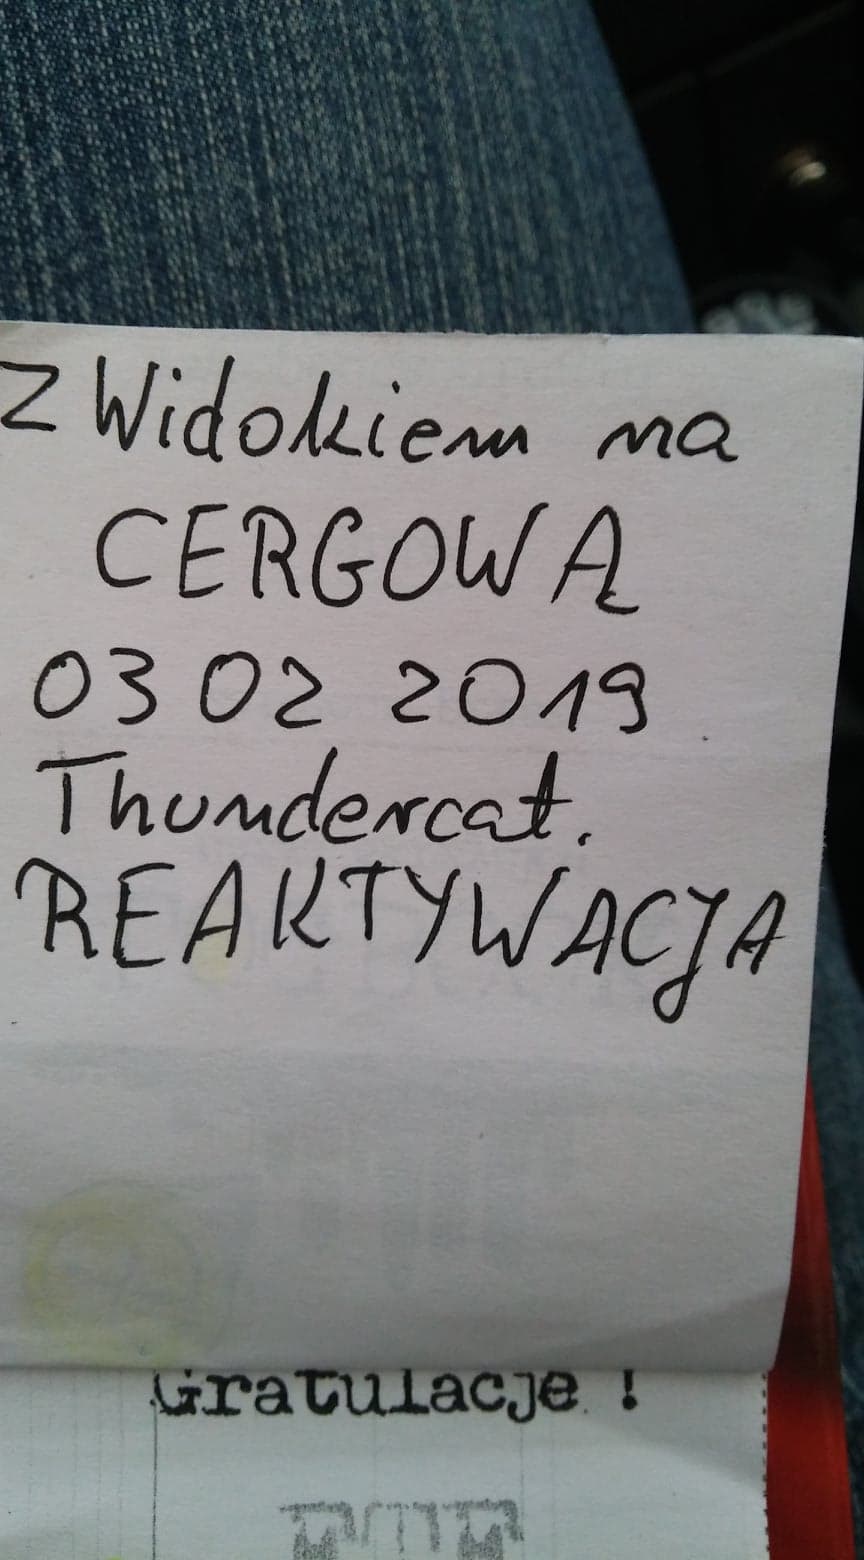 Z Widokiem na
CERGOWĄ
03 02 2019
Thundercat.
REAKTYWACJA
Gratulacje !